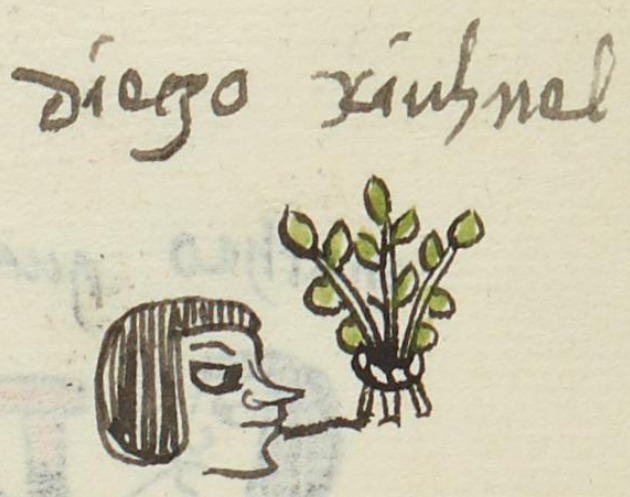 diego xiuhnel